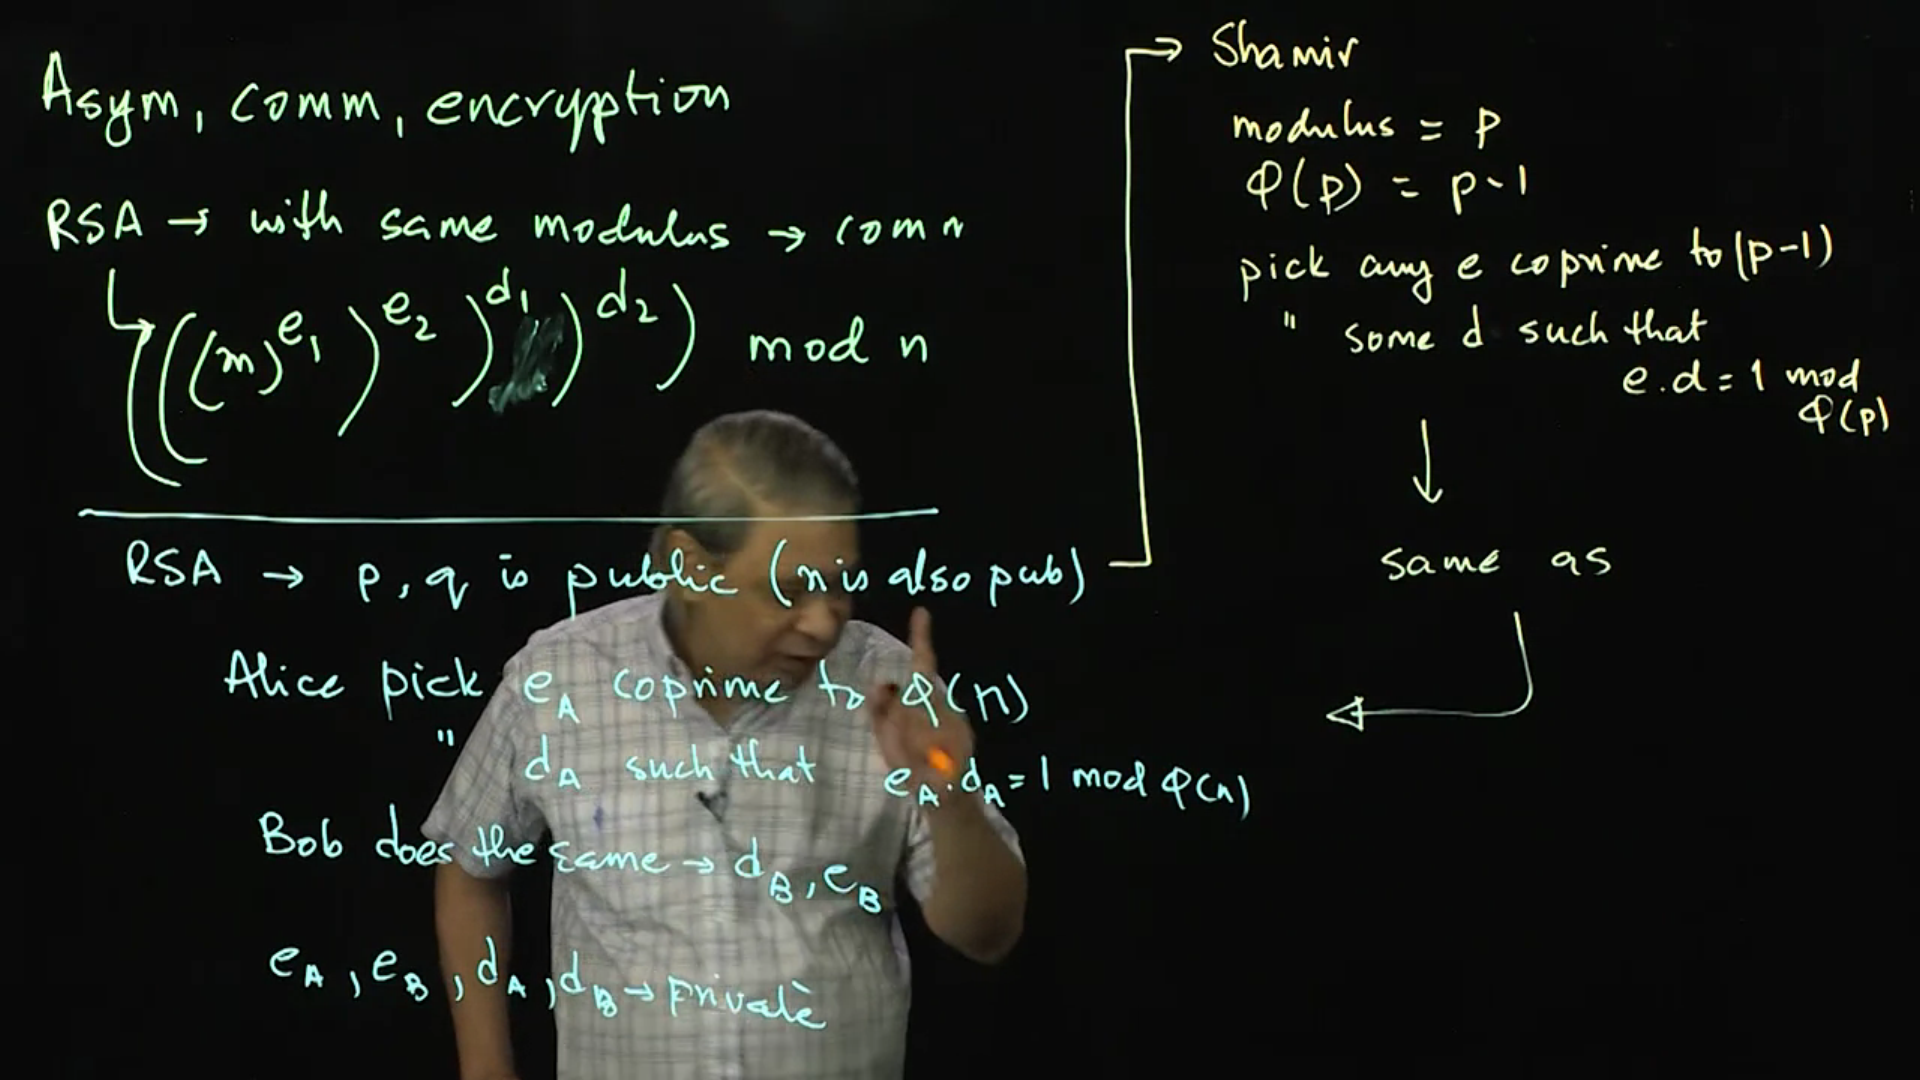 Asym, comm, encryption
RSA → with same modulus → comm
(((m)^e₁)^e₂)^d₁)^d₂) mod n
RSA → p, q is public (n is also pub)
Alice pick e_A coprime to φ(n)
" d_A such that e_A . d_A = 1 mod φ(n)
Bob does the same → d_B, e_B
e_A, e_B, d_A, d_B → private
→ Shamir
modulus = p
φ(p) = p-1
pick any e coprime to (p-1)
" some d such that
e.d = 1 mod
φ(p)
↓
same as